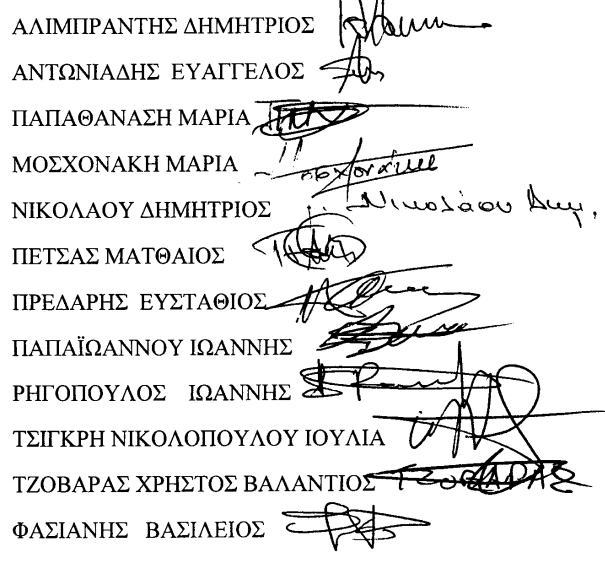 ΑΛΙΜΠΡΑΝΤΗΣ ΔΗΜΗΤΡΙΟΣ
ΑΝΤΩΝΙΑΔΗΣ ΕΥΑΓΓΕΛΟΣ
ΠΑΠΑΘΑΝΑΣΗ ΜΑΡΙΑ
ΜΟΣΧΟΝΑΚΗ ΜΑΡΙΑ
ΝΙΚΟΛΑΟΥ ΔΗΜΗΤΡΙΟΣ Νικολάου Δημ.
ΠΕΤΣΑΣ ΜΑΤΘΑΙΟΣ
ΠΡΕΔΑΡΗΣ ΕΥΣΤΑΘΙΟΣ
ΠΑΠΑΪΩΑΝΝΟΥ ΙΩΑΝΝΗΣ
ΡΗΓΟΠΟΥΛΟΣ ΙΩΑΝΝΗΣ
ΤΣΙΓΚΡΗ ΝΙΚΟΛΟΠΟΥΛΟΥ ΙΟΥΛΙΑ
ΤΖΟΒΑΡΑΣ ΧΡΗΣΤΟΣ ΒΑΛΑΝΤΙΟΣ ΤΖΟΒΑΡΑΣ
ΦΑΣΙΑΝΗΣ ΒΑΣΙΛΕΙΟΣ